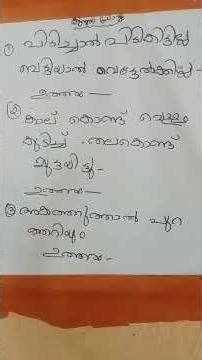 കുസൃതി ചോദ്യം
① പിടിച്ചാൽ പിടികിട്ടില്ല
വെട്ടിയാൽ വെട്ടേൽക്കില്ല -
ഉത്തരം -
② കാല് കൊണ്ട് വെള്ളം
കുടിച്ച് . തലകൊണ്ട്
മുട്ടയിട്ടു -
ഉത്തരം -
③ അകത്തുത്താൽ പുറ
ത്തറിയും
ഉത്തരം -